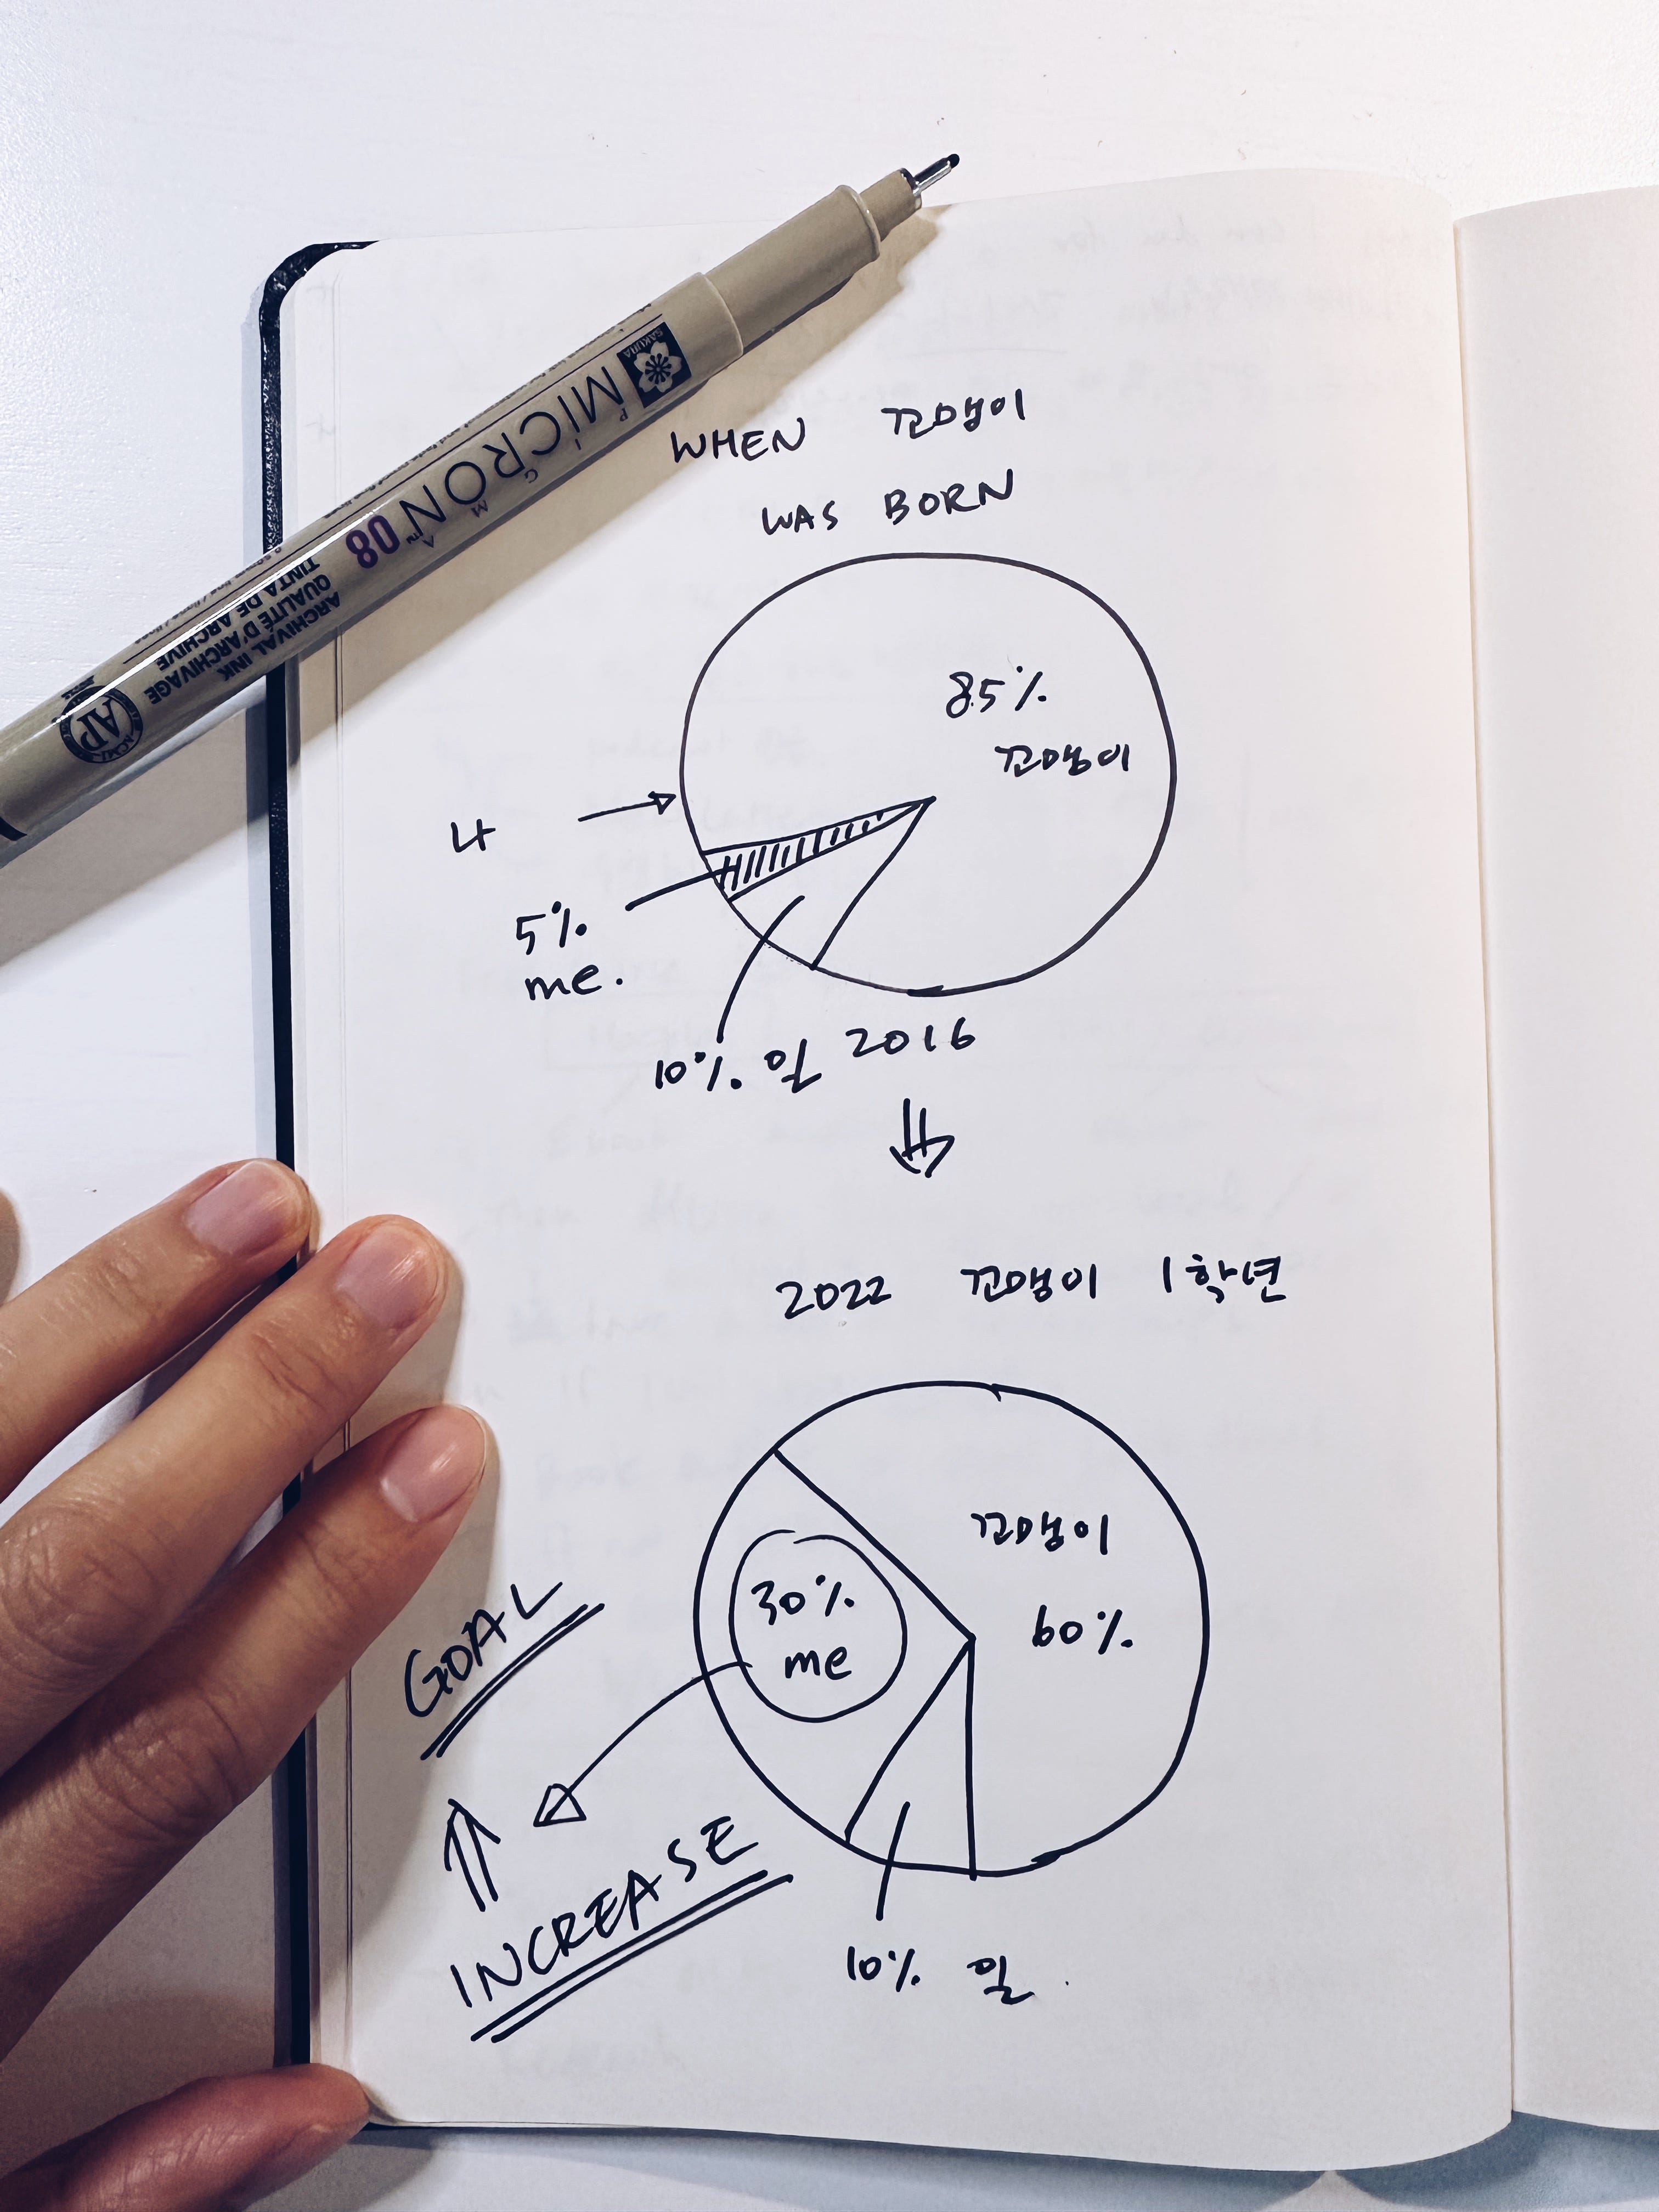 SAKURA
PIGMA
MICRON™ 08
ARCHIVAL INK
QUALITÉ D'ARCHIVAGE
TINTA DE ARCHIVE
AP
WHEN 꼬맹이
WAS BORN
85%
꼬맹이
나
5%
me.
10%. 일
2016
2022 꼬맹이 1학년
꼬맹이
60%
30%
me
GOAL
INCREASE
10% 일.